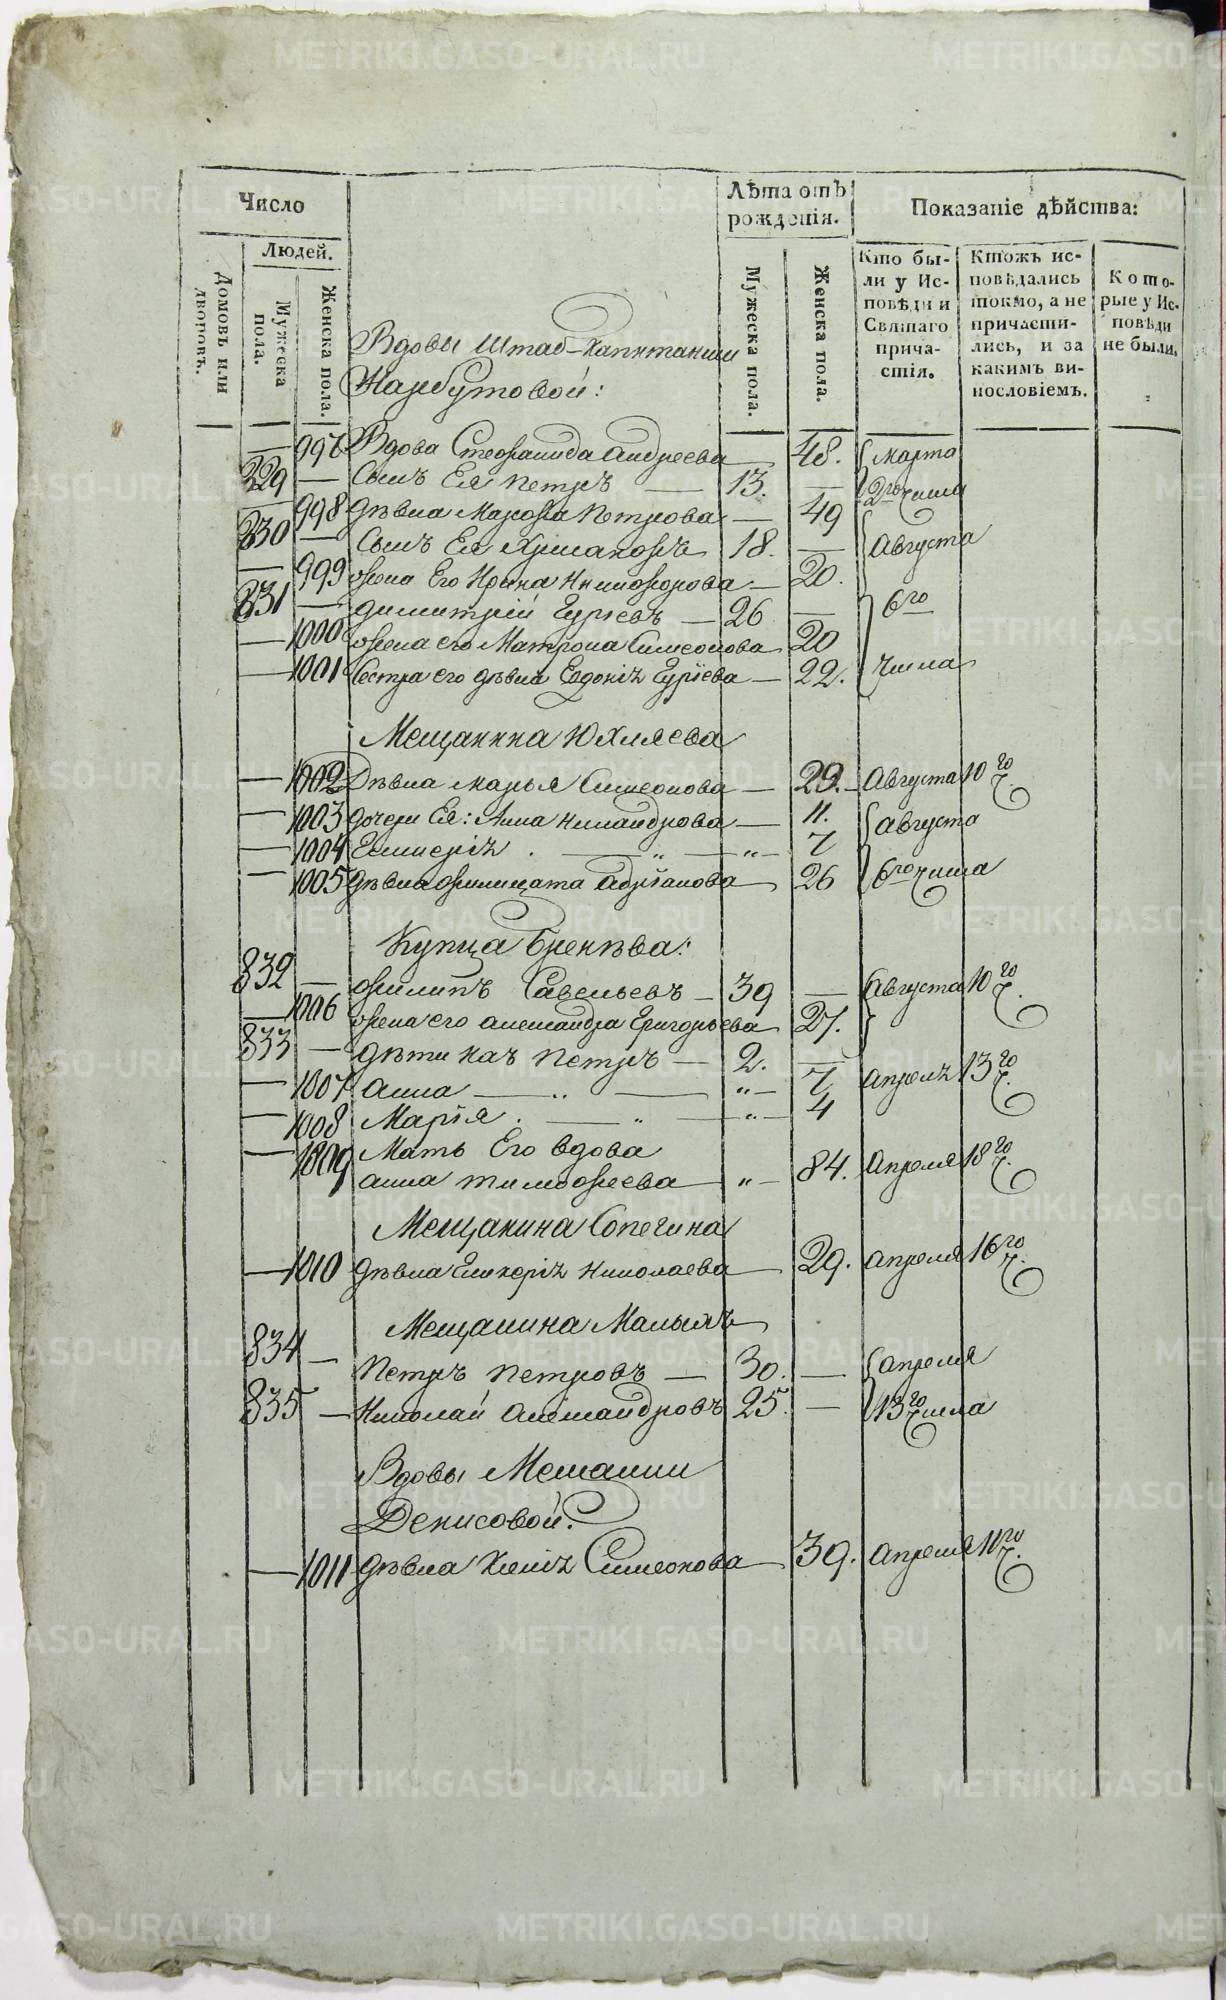 Число
Лѣта отъ рожденія.
Показаніе дѣйства:
Домовъ или дворовъ.
Людей.
Мужеска пола.
Женска пола.
Мужеска пола.
Женска пола.
Кто были у Исповѣди и Святаго причастія.
Ктожъ исповѣдались токмо, а не причастились, и за какимъ винословіемъ.
Которые у Исповѣди не были.
Вдовы Штаб-Капитанши
Нарбутовой:
997 Вдова Стефанида Андреева 48. Марта
829 Сынъ Ея Петръ 13. 2го числа
998 дѣвка Марфа Петрова 49
830 Сынъ Ея 18. Августа
999 жена Его Ирина Никифорова 20.
831 Димитрій Гурьевъ 26 6го
1000 жена его Матрона Симеонова 20
1001 Сестра его дѣвка Евдокія Гуріева 22. числа
Мещанина Юхляева
1002 Дѣвка Марья Симеонова 29. Августа 10го ч.
1003 дочери Ея: Анна 11. Августа
1004 7
1005 дѣвка Филицата 26 6го числа
Купца Бренѣва:
832 Филипъ Савельевъ 39 Августа 10го ч.
1006 жена его Александра Григорьева 27.
833 дѣти ихъ Петръ 2.
1007 Анна „ „ 7 Апреля 13го ч.
1008 Марія „ „ 4
1009 Мать Его вдова
Анна Тимофеева „ 84. Апреля 18го ч.
Мещанина Сопегина
1010 дѣвка Николаева 29. Апреля 16го ч.
Мещанина Малыхъ
834 Петръ Петровъ 30. Апреля
835 Николай Александровъ 25. 13го числа
Вдовы Мещанки
Денисовой:
1011 дѣвка Симеонова 39. Апреля 11го ч.
METRIKI.GASO-URAL.RU